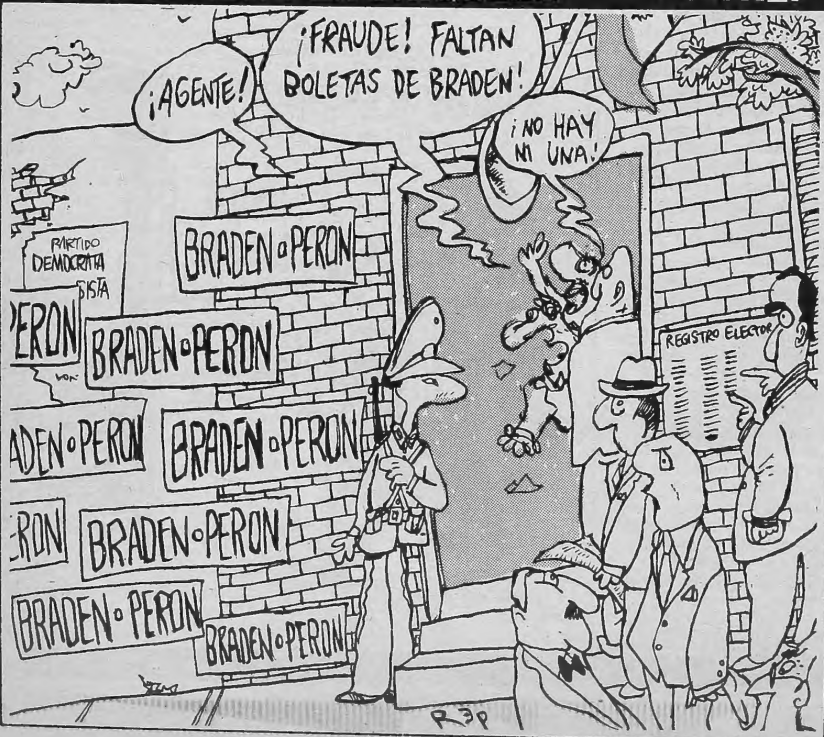 ¡AGENTE!
¡FRAUDE! FALTAN
BOLETAS DE BRADEN!
¡NO HAY
NI UNA!
PARTIDO
DEMOCRATA
SISTA
BRADEN o PERON
PERON
BRADEN o PERON
ADEN o PERON
BRADEN o PERON
ERON
BRADEN o PERON
BRADEN o PERON
BRADEN o PERON
REGISTRO ELECTOR
REP